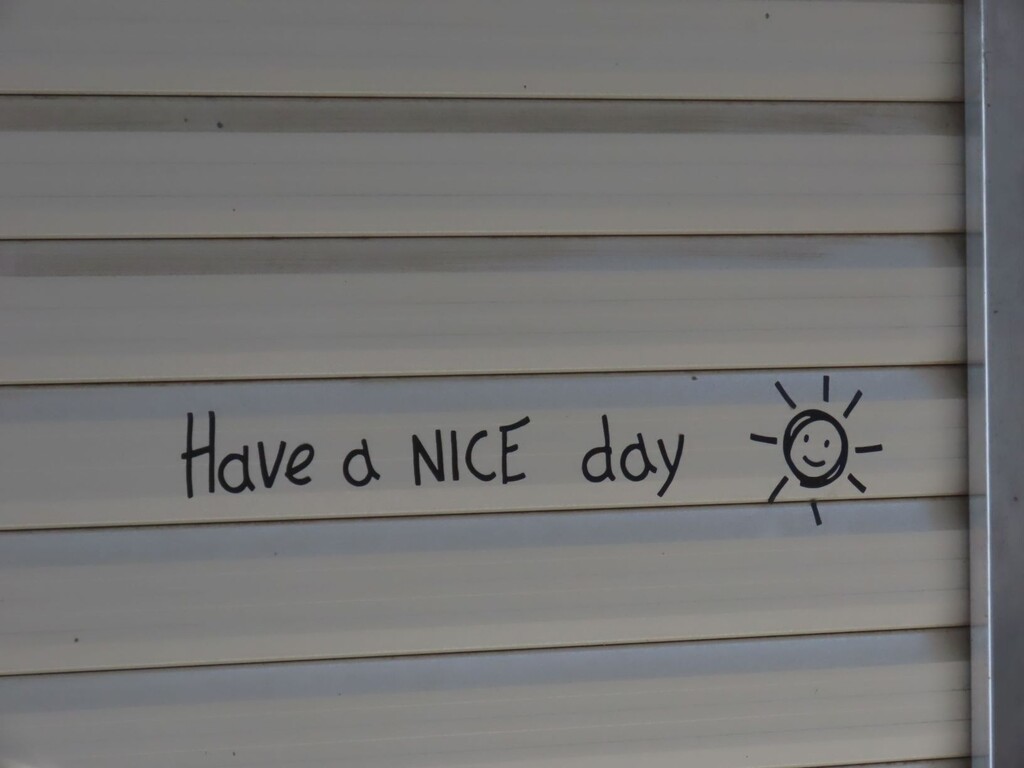 Have a NICE day